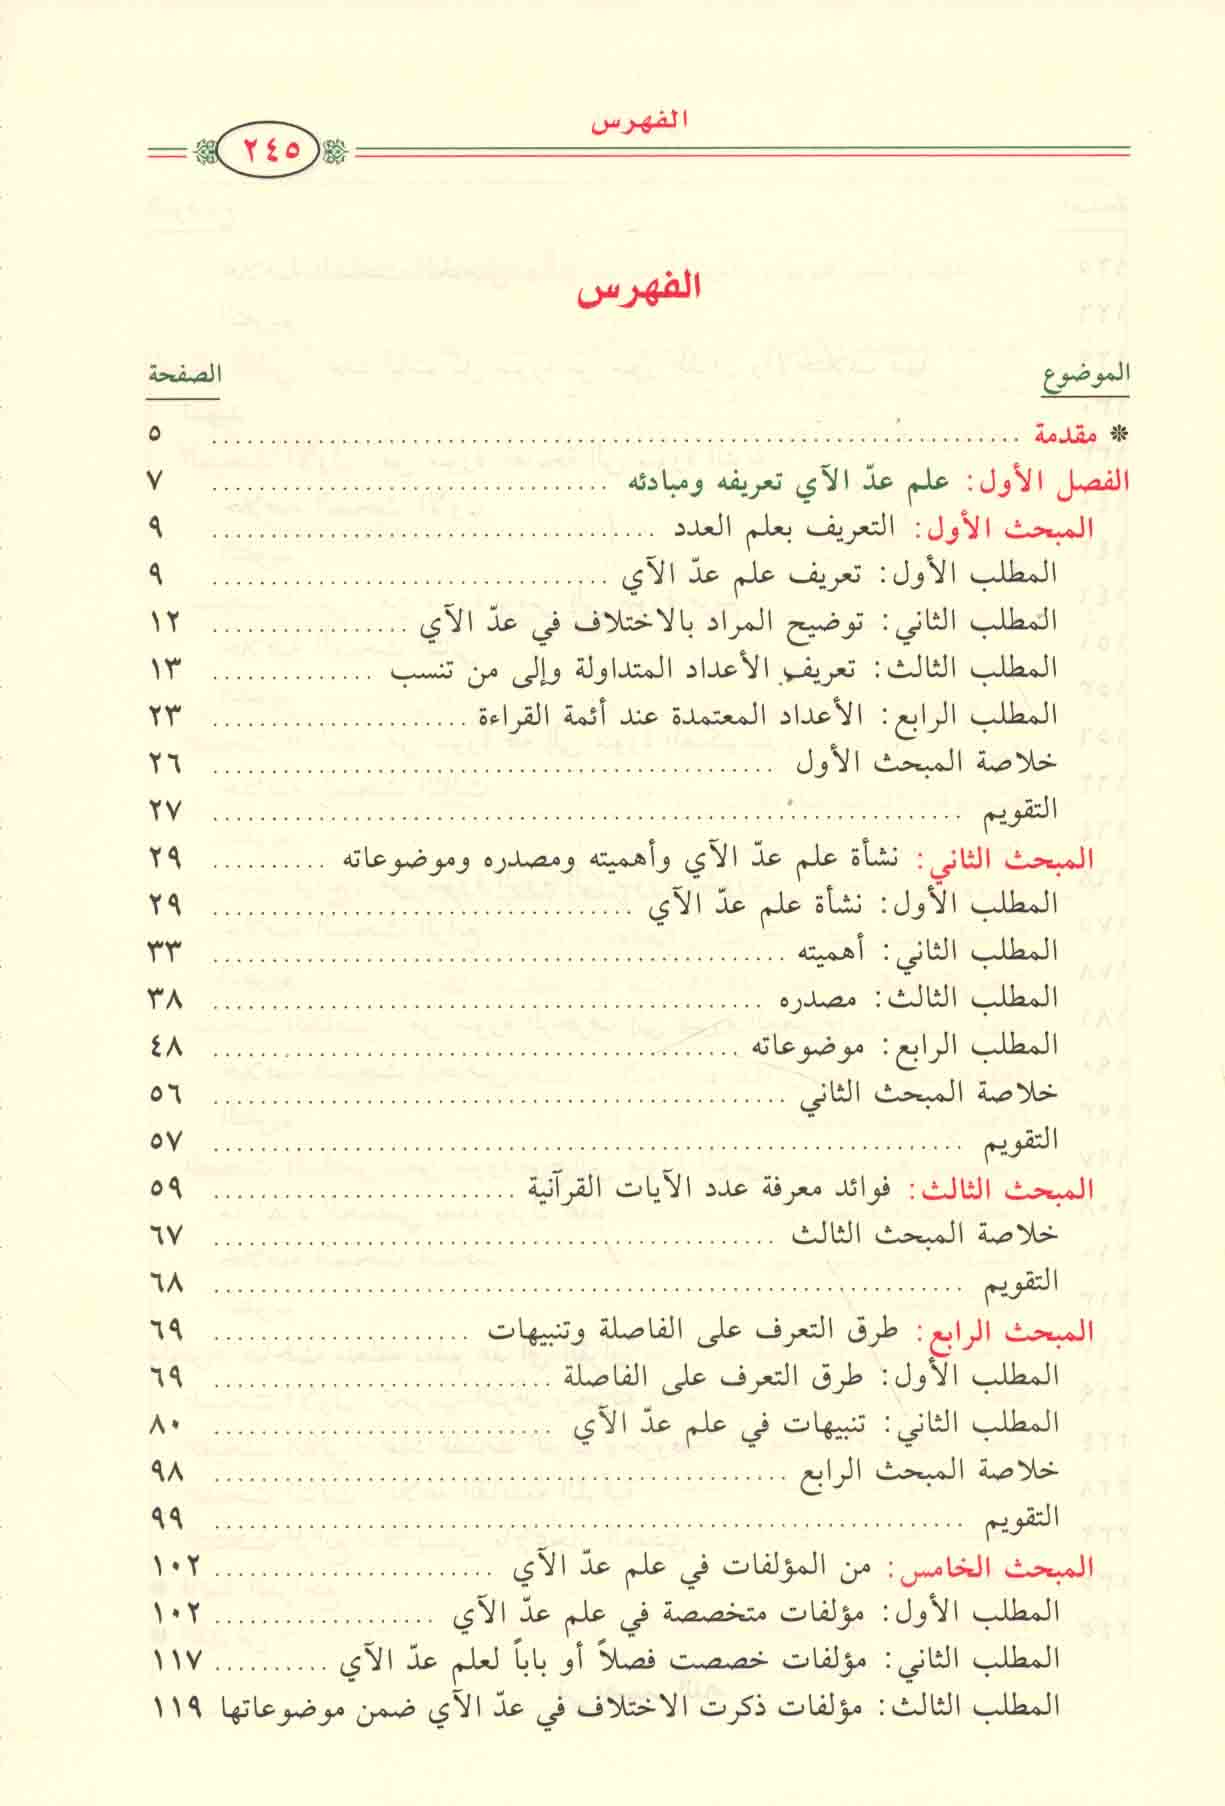 الفهرس
٢٤٥
الفهرس
الموضوع الصفحة
* مقدمة ........ ٥
الفصل الأول: علم عدّ الآي تعريفه ومبادئه ........ ٧
المبحث الأول: التعريف بعلم العدد ........ ٩
المطلب الأول: تعريف علم عدّ الآي ........ ٩
المطلب الثاني: توضيح المراد بالاختلاف في عدّ الآي ........ ١٢
المطلب الثالث: تعريف الأعداد المتداولة وإلى من تنسب ........ ١٣
المطلب الرابع: الأعداد المعتمدة عند أئمة القراءة ........ ٢٣
خلاصة المبحث الأول ........ ٢٦
التقويم ........ ٢٧
المبحث الثاني: نشأة علم عدّ الآي وأهميته ومصدره وموضوعاته ........ ٢٩
المطلب الأول: نشأة علم عدّ الآي ........ ٢٩
المطلب الثاني: أهميته ........ ٣٣
المطلب الثالث: مصدره ........ ٣٨
المطلب الرابع: موضوعاته ........ ٤٨
خلاصة المبحث الثاني ........ ٥٦
التقويم ........ ٥٧
المبحث الثالث: فوائد معرفة عدد الآيات القرآنية ........ ٥٩
خلاصة المبحث الثالث ........ ٦٧
التقويم ........ ٦٨
المبحث الرابع: طرق التعرف على الفاصلة وتنبيهات ........ ٦٩
المطلب الأول: طرق التعرف على الفاصلة ........ ٦٩
المطلب الثاني: تنبيهات في علم عدّ الآي ........ ٨٠
خلاصة المبحث الرابع ........ ٩٨
التقويم ........ ٩٩
المبحث الخامس: من المؤلفات في علم عدّ الآي ........ ١٠٢
المطلب الأول: مؤلفات متخصصة في علم عدّ الآي ........ ١٠٢
المطلب الثاني: مؤلفات خصصت فصلاً أو باباً لعلم عدّ الآي ........ ١١٧
المطلب الثالث: مؤلفات ذكرت الاختلاف في عدّ الآي ضمن موضوعاتها ١١٩